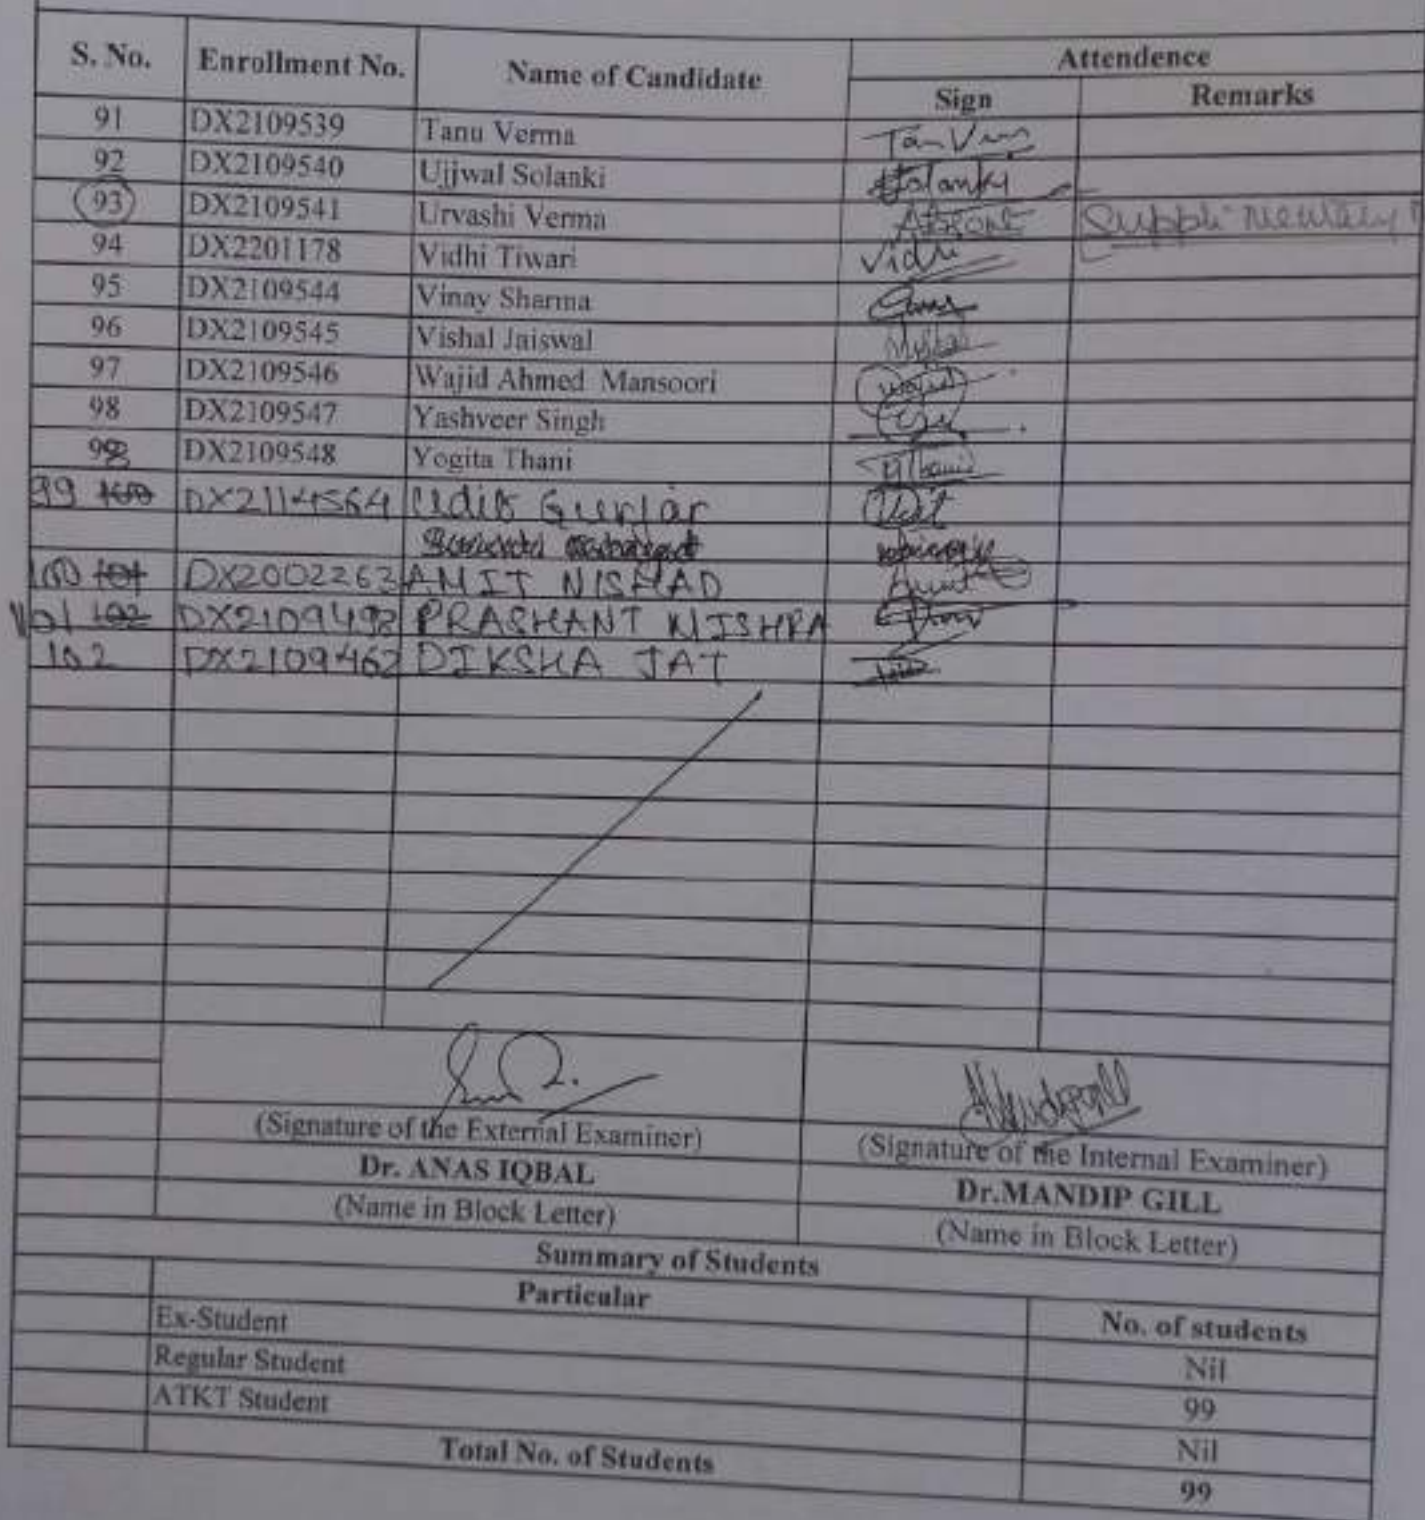 S. No. Enrollment No. Name of Candidate Attendence
Sign Remarks
91 DX2109539 Tanu Verma
92 DX2109540 Ujjwal Solanki Solanki
93 DX2109541 Urvashi Verma
94 DX2201178 Vidhi Tiwari Vidhi
95 DX2109544 Vinay Sharma
96 DX2109545 Vishal Jaiswal
97 DX2109546 Wajid Ahmed Mansoori Wajid
98 DX2109547 Yashveer Singh
DX2109548 Yogita Thani
99 100 DX2114564 Udit Gurjar Udit
100 101 DX2002263 AMIT NISHAD Amit
101 102 DX2109498 PRASHANT MISHRA
102 DX2109462 DIKSHA JAT
(Signature of the External Examiner) (Signature of the Internal Examiner)
Dr. ANAS IQBAL Dr.MANDIP GILL
(Name in Block Letter) (Name in Block Letter)
Summary of Students
Particular No. of students
Ex-Student Nil
Regular Student 99
ATKT Student Nil
Total No. of Students 99